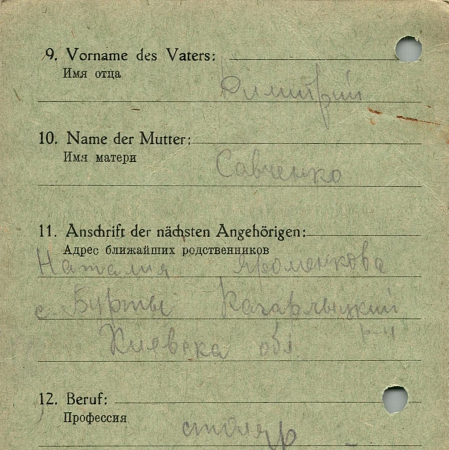 9. Vorname des Vaters:
Имя отца
Димитрий
10. Name der Mutter:
Имя матери
Савченко
11. Anschrift der nächsten Angehörigen:
Адрес ближайших родственников
Наталия Яроменкова
с. Бурты Кагарлыцкий
Киевска обл р-н
12. Beruf:
Профессия
столяр